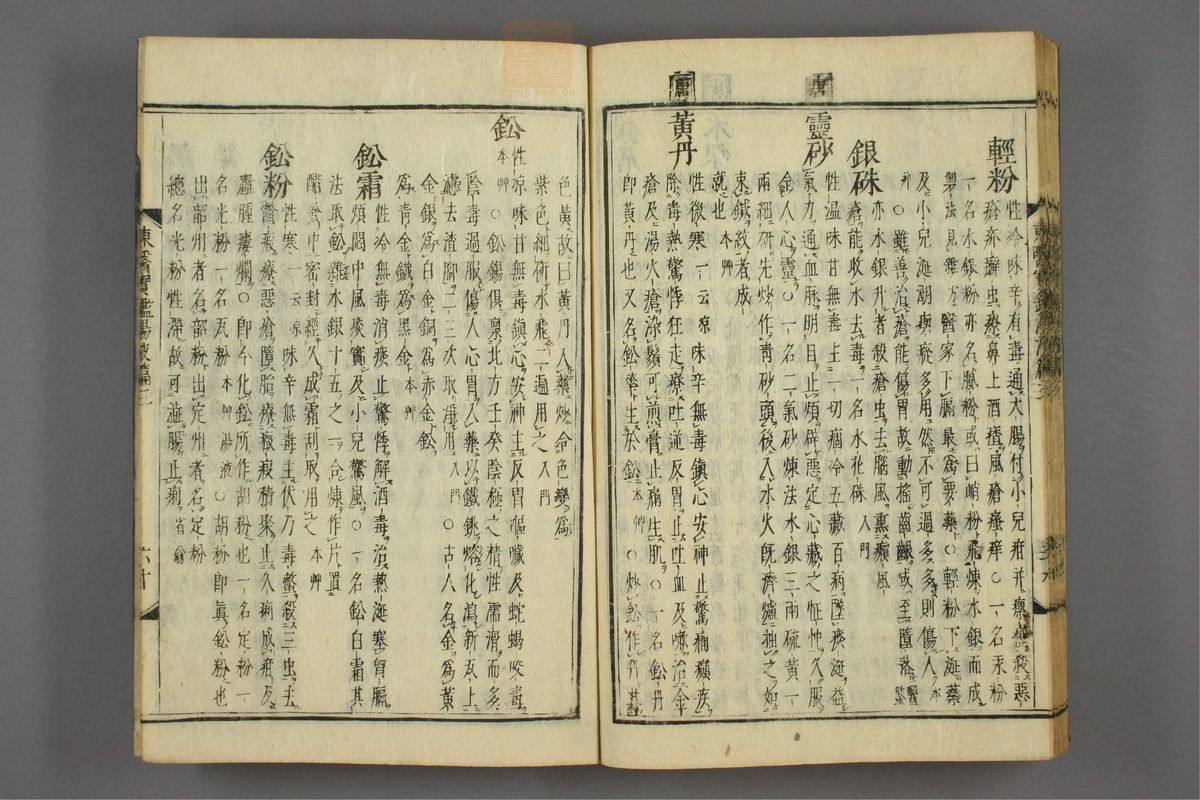 輕粉
性冷味辛有毒通大腸付小兒疳并瘰癧殺惡
瘡疥癬虫療鼻上酒䵟風瘡瘙痒○一名汞粉
一名水銀粉亦名膩粉或曰峭粉飛煉水銀而成
製法見雜方醫家下膈最爲要藥○輕粉下涎藥
及小兒涎潮瘈瘲多用然不可過多多則傷人本
艸○雖善治瘡能傷胃故動搖齒齦或至墮落醫鑑
銀硃
亦水銀升者殺瘡虫去腦風熏癩風
瘡能收水去毒一名水花硃入門
靈砂
性溫味甘無毒主一切痼冷五藏百病墜痰涎益
氣力通血脉明目止煩辟惡定心藏之怔忡久服
令人心靈○一名二氣砂煉法水銀三兩硫黃一
兩細研先炒作靑砂頭後入水火旣濟爐抽之如
束鍼紋者成
就也本艸
黃丹
性後寒一云凉味辛無毒鎭心安神止驚癎癲疾
除毒熱驚悸狂走療吐逆反胃止吐血及嗽治金
瘡及湯火瘡染鬚可煎膏止痛生肌○一名鈆丹
卽黃丹也又名鈆華生於鈆本艸○炒鈆作丹其
色黃故曰黃丹入藥炒令色變爲
紫色細硏水飛二遍用之入門
鈆
性凉味甘無毒鎭心安神主反胃嘔噦及蛇蝎咬毒
本艸○鈆錫俱稟北方壬癸陰極之精性濡滑而多
陰毒過服傷人心胃入藥以鐵銚熔化瀉新瓦上
濾去渣脚二三次取淨用入門○古人名金爲黃
金銀爲白金銅爲赤金鈆
爲靑金鐵爲黑金本艸
鈆霜
性冷無毒消痰止驚悸解酒毒治熱涎塞胷膈
煩悶中風痰實及小兒驚風○一名鈆白霜其
法取鈆雜水銀十五之一合煉作片置
醋瓮中密封經久成霜刮取用之本艸
鈆粉
性寒一云冷味辛無毒主伏尸毒螫殺三虫去
鱉瘕療惡瘡墮胎療癥瘕積聚止久痢成疳及
癰腫瘻爛○卽今化鈆所作胡粉也一名定粉一
名光粉一名瓦粉本艸○胡粉卽眞鈆粉也
出韶州者名韶粉出定州者名定粉
總名光粉性滯故可澁腸止痢
東醫寶鑑湯液篇三
六十